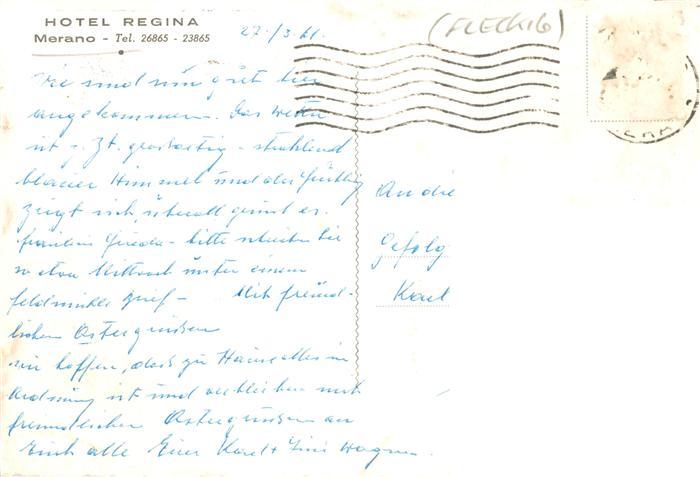 HOTEL REGINA
Merano - Tel. 26865 - 23865
27./3.61.
(FLECKIG)
Wir sind nun gut hier
angekommen. Das Wetter
ist z. Zt. grossartig - strahlend
blauer Himmel und der Frühling
zeigt sich, überall grünt es.
Fräulein Frieda - bitte schicken Sie
so etwa Mittwoch unter einem
Mit freund-
lichen Ostergrüssen
wir hoffen, dass zu Hause alles in
Ordnung ist und verbleiben mit
freundlichen Ostergrüssen an
Euch alle Euer Karl + Wagner.
An die
Gefolg
Karl